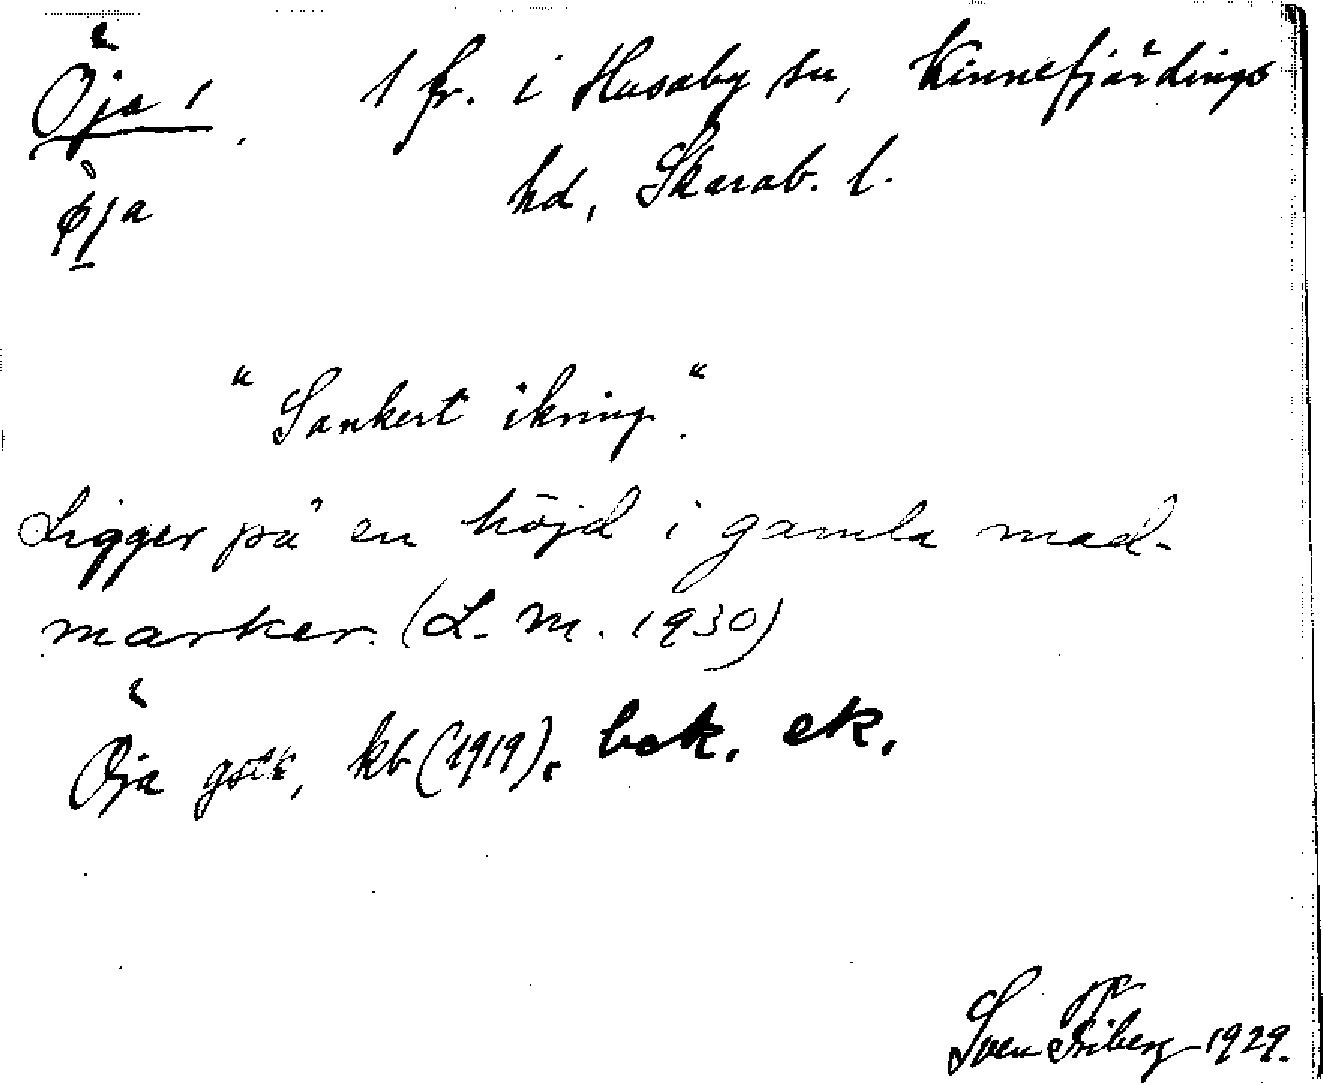 Öja 1, 1 fr. i Husaby sn, Kinnefjärdings
hd, Skarab. l.
"Sankert ikring".
Ligger på en höjd i gamla mad-
marker. (L. M. 1930)
Öja gstk, kb (1919). bek. ek.
Sven Friberg 1929.